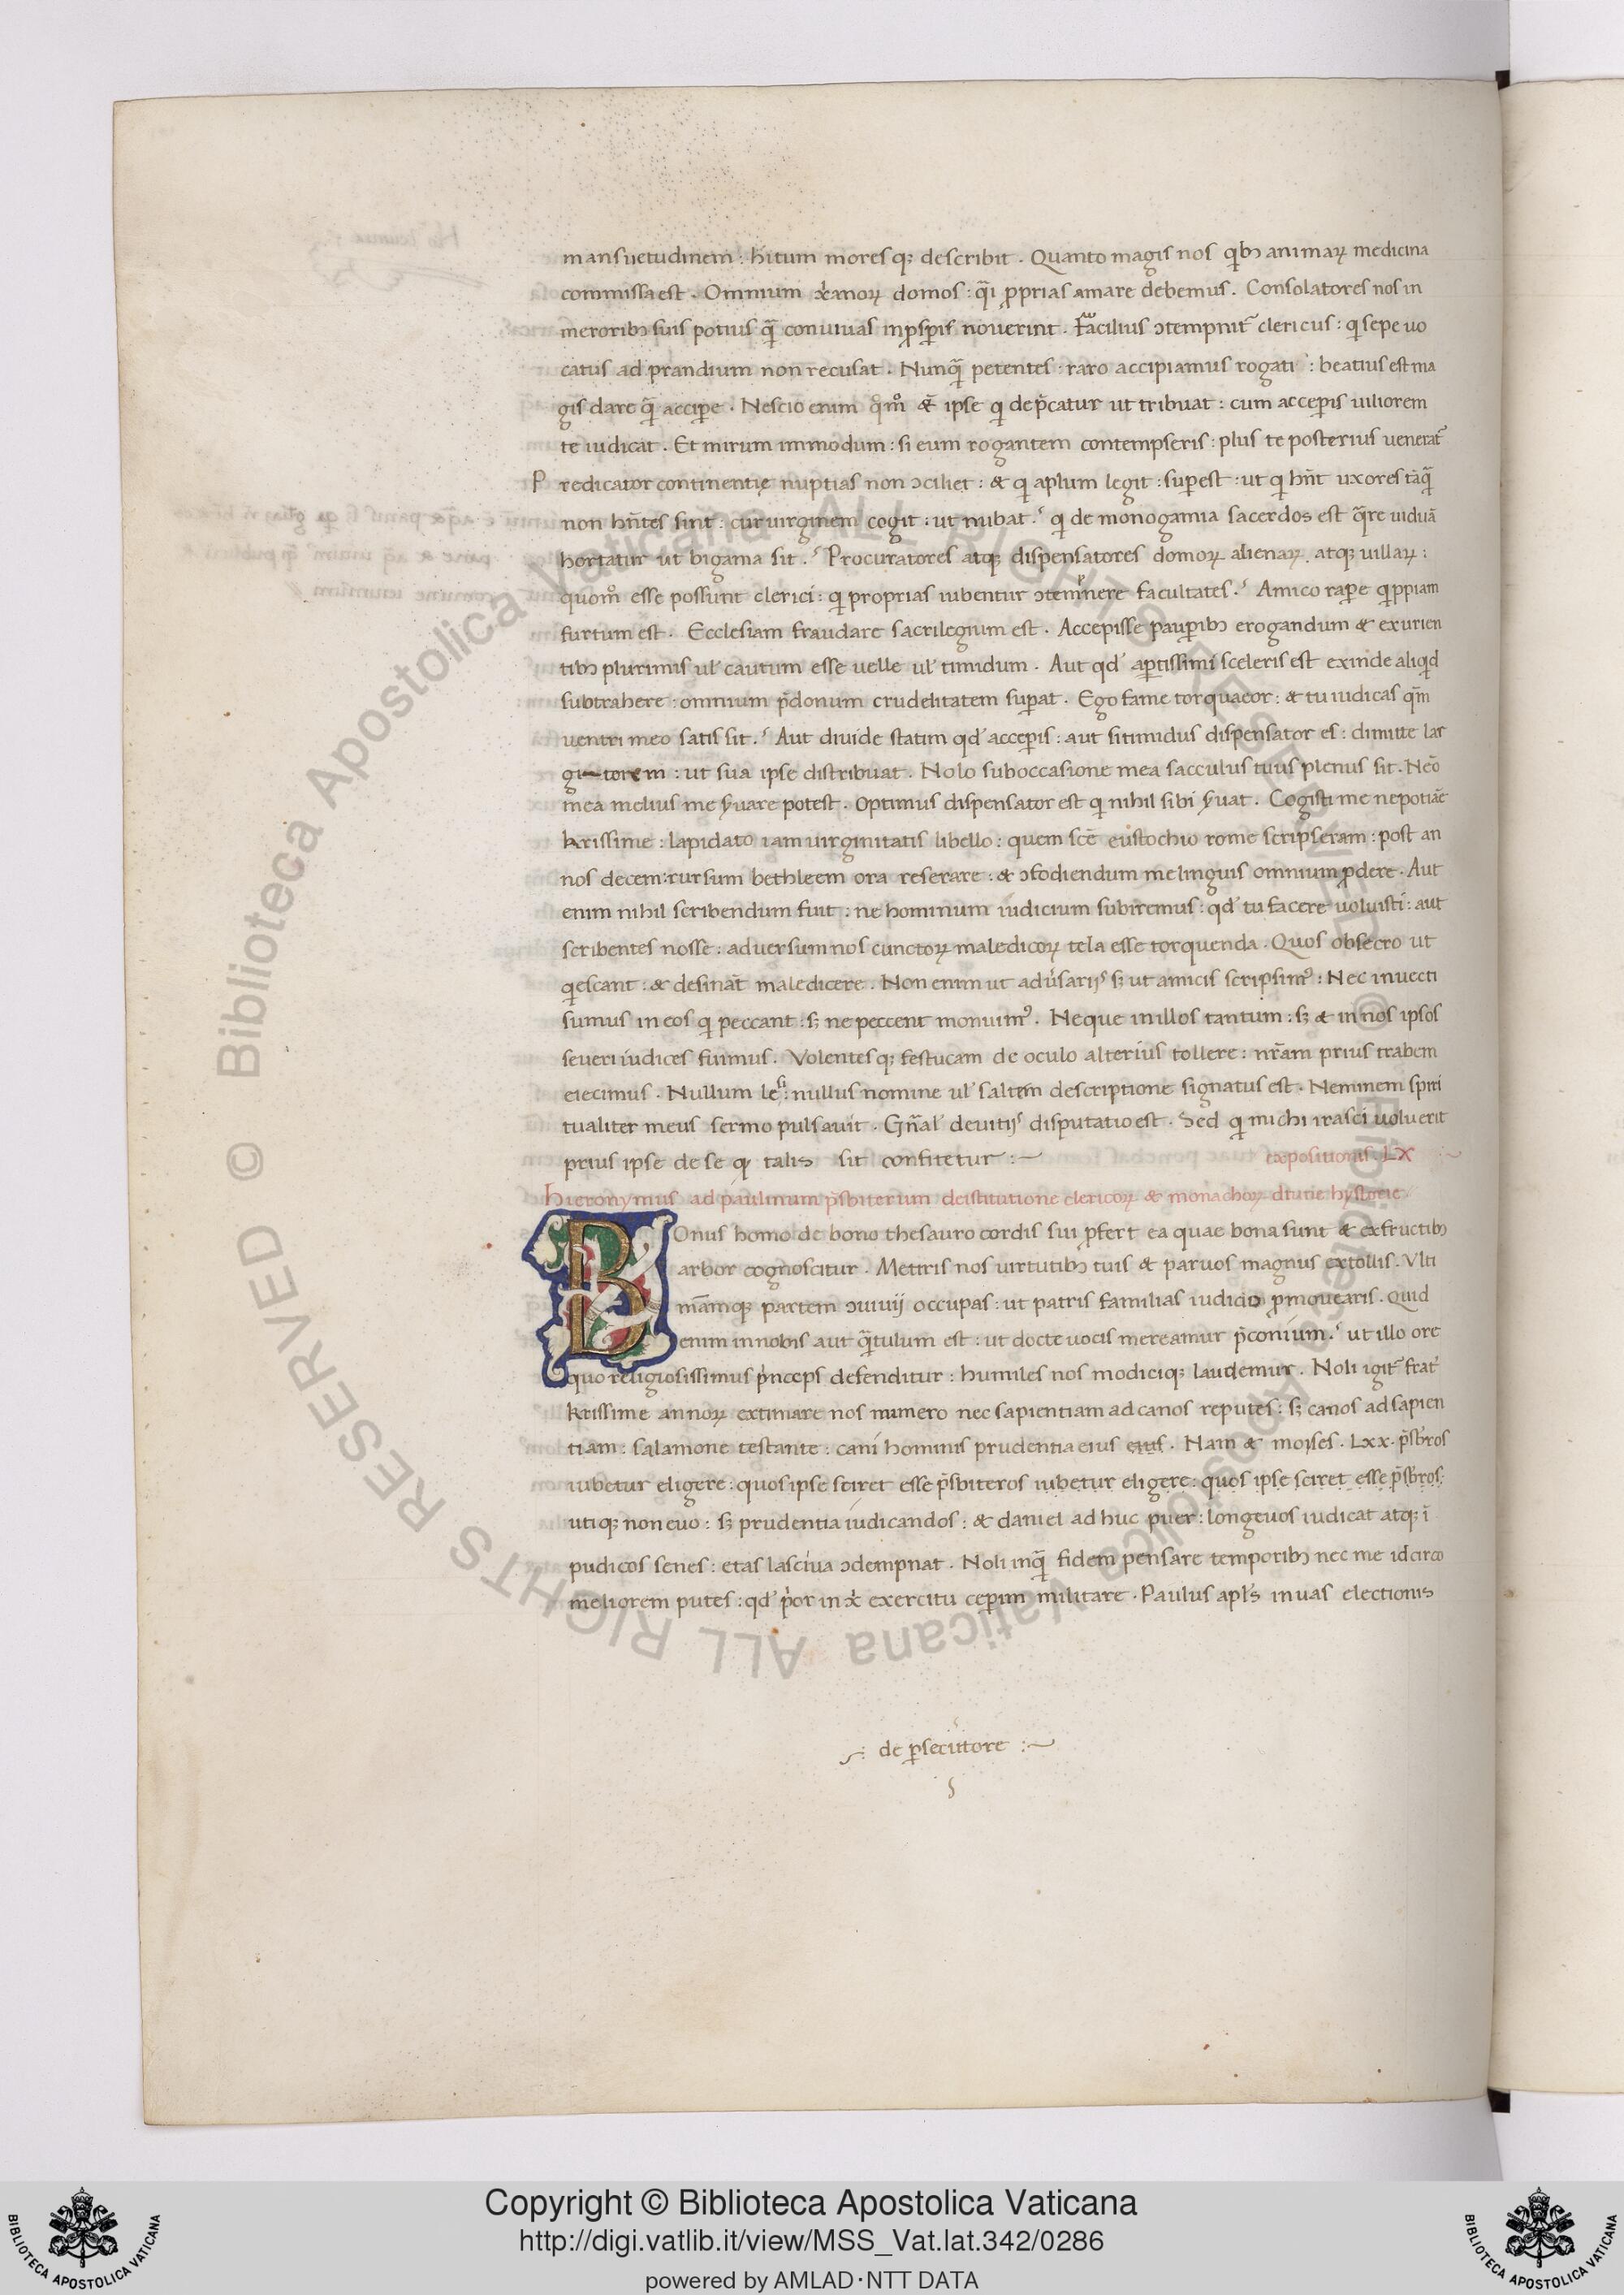 mansuetudinem : hitum mores qꝫ describit . Quanto magis nos qꝫ animaꝝ medicina
commissa est . Omnium xͥanoꝝ domos : qͣi ꝓprias amare debemus . Consolatores nos in
meroribꝫ suis potius qͣ conuiuas in ꝓsꝑis nouerint . Facilius ↄtempnit᷑ clericus : qi sepe uo
catus ad prandium non recusat . Nunqͣ petentes : raro accipiamus rogati : beatius est ma
gis dare qͣ acciꝑe . Nescio enim qͦmͦ & ipse qi dep̄catur ut tribuat : cum acceꝑis uiliorem
te iudicat . Et mirum immodum : si eum rogantem contempseris : plus te posterius uenerat᷑
Predicator continentię nuptias non ↄciliet : & qi aplum legit : suꝑest : ut qi hn̄t uxores tāqͣ
non hn̄tes sint : cur uirginem cogit : ut nubat .ˀ qi de monogamia sacerdos est qͣre uiduā
hortatur ut bigama sit .ˀ Procuratores atqꝫ dispensatores domoꝝ alienaꝝ . atqꝫ uillaꝝ :
quomͦ esse possunt clerici : qi proprias iubentur ↄtemnere facultates .ˀ Amico raꝑe qippiam
furtum est . Ecclesiam fraudare sacrilegium est . Accepisse pauꝑibꝫ erogandum & exurien
tibꝫ plurimis ul̓ cautum esse uelle ul̓ timidum . Aut qd̓ aꝑtissimi sceleris est exinde aliqid
subtrahere : omnium p̄donum crudelitatem suꝑat . Ego fame torquaeor : & tu iudicas qͣm
uentri meo satis sit .ˀ Aut diuide statim qd̓ acceꝑis : aut si timidus dispensator es : dimitte lar
gitorem : ut sua ipse distribuat . Nolo sub occasione mea sacculus tuus plenus sit . Neō
mea melius me ẜuare potest . Optimus dispensator est qi nihil sibi ẜuat . Cogisti me nepotiāe
krissime : lapidato iam uirginitatis libello : quem scē eustochio rome scripseram : post an
nos decem : rursum bethleem ora reserare : & ↄfodiendum me linguis omnium ꝓdere . Aut
enim nihil scribendum fuit : ne hominum iudicium subiremus : qd̓ tu facere uoluisti : aut
scribentes nosse : aduersum nos cunctoꝝ maledicoꝝ tela esse torquenda . Quos obsecro ut
qiescant : & desināt maledicere . Non enim ut adůsarijˢ sꝫ ut amicis scripsimꝰ : Nec inuecti
sumus in eos qi peccant : sꝫ ne peccent monuimꝰ . Neque in illos tantum : sꝫ & in nos ipsos
seueri iudices fuimus . Volentes qꝫ festucam de oculo alterius tollere : nr̄am prius trabem
eiecimus . Nullum leˢⁱ : nullus nomine ul̓ saltem descriptione signatus est . Neminem spiri
tualiter meus sermo pulsauit . Gn̄al̓ de uitijˢ disputatio est . Sed qi michi irasci uoluerit
prius ipse de se qꝫ talis sit confitetur :~ expositionis . LX :~
Hieronymus ad paulinum p̄sbiterum de istitutione clericoꝝ & monachoꝝ diuine hystorie
BOnus homo de bono thesauro cordis sui ꝓfert ea quae bona sunt & ex fructibꝫ
arbor cognoscitur . Metiris nos uirtutibꝫ tuis & paruos magnus extollis . Vlti
māmqꝫ partem ↄuiuij occupas : ut patris familias iudicio ꝓmouearis . Quid
enim in nobis aut qͣtulum est : ut docte uocis mereamur p̄conium .ˀ ut illo ore
quo religiosissimus pͥnceps defenditur : humiles nos modiciqꝫ laudemur . Noli igit᷑ frat̓
krissime annoꝝ extimare nos numero nec sapientiam ad canos reputes : sꝫ canos ad sapien
tiam : salamone testante : cani hominis prudentia eius . Nam & moises . Lxx . p̄sbr̓os
iubetur eligere : quos ipse sciret esse p̄sbiteros iubetur eligere : quos ipse sciret esse p̄sbr̓os :
utiqꝫ non euo : sꝫ prudentia iudicandos : & daniel ad huc puer : longeuos iudicat atqꝫ ī
pudicos senes : etas lasciua ↄdempnat . Noli inqͣ fidem pensare temporibꝫ nec me idcirco
meliorem putes : qd̓ pͥor in xͥ exercitu ceꝑim militare . Paulus apl̓s in uas electionis
~: de ꝑsecutore :~
Copyright © Biblioteca Apostolica Vaticana
http://digi.vatlib.it/view/MSS_Vat.lat.342/0286
powered by AMLAD·NTT DATA
BIBLIOTECA APOSTOLICA VATICANA
BIBLIOTECA APOSTOLICA VATICANA
© Biblioteca Apostolica Vaticana ALL RIGHTS RESERVED © Biblioteca Apostolica Vaticana ALL RIGHTS RESERVED